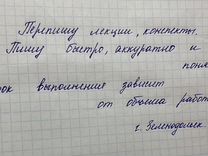 Перепишу лекции, конспекты.
Пишу быстро, аккуратно и
поня
ок выполнения зависит
от объёма работ
г. Зеленодольск